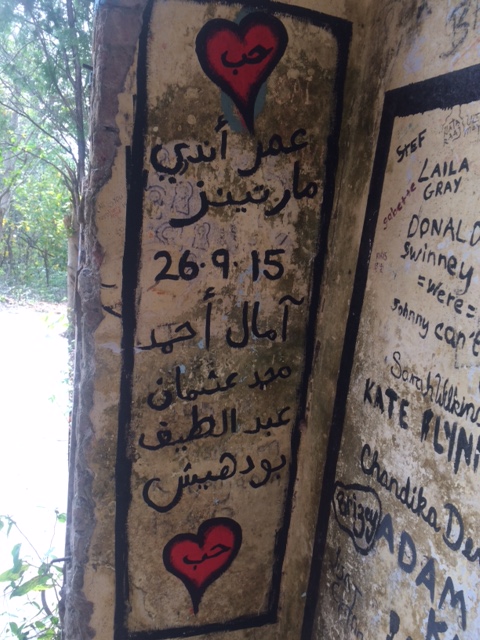 حب
عمر أندي
مارتينز
26.9.15
آمال أحمد
مجد عثمان
عبد الطيف
بودهيش
حب
STEF
LAILA
GRAY
DONALD
Swinney
=were=
Johnny can't
Sarah Wilkins
KATE FLYN
Chandika De
Brizey
ADAM